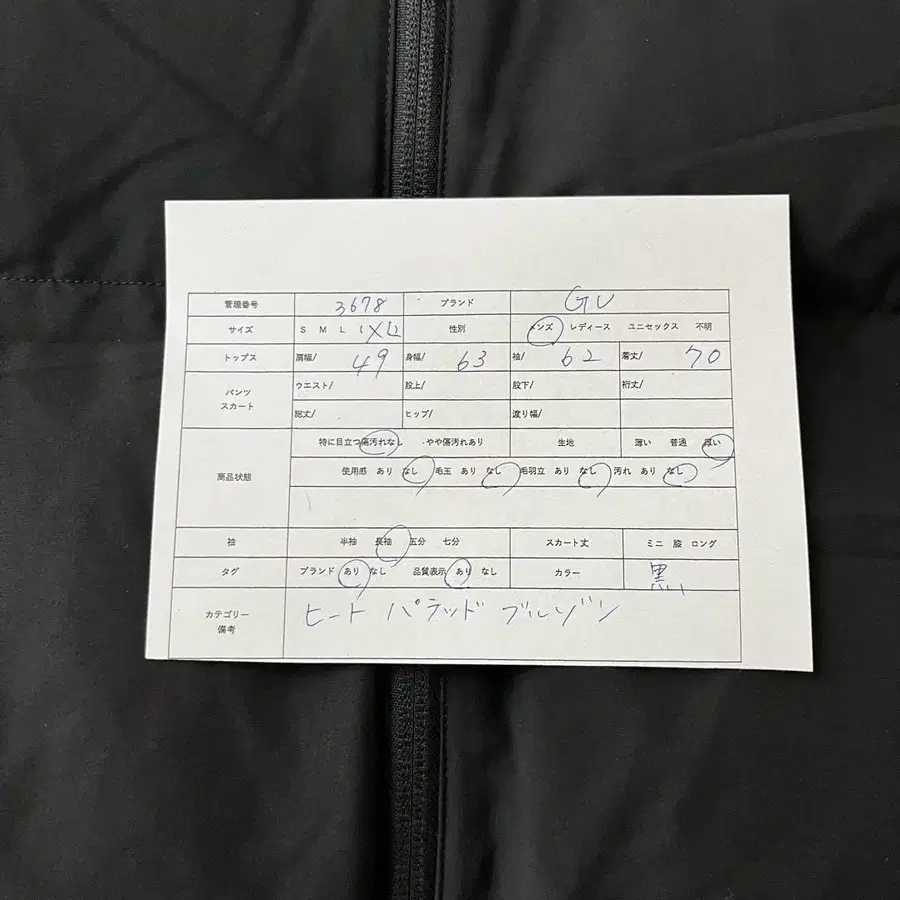 管理番号 3678 ブランド GU
サイズ S M L (XL) 性別 メンズ レディース ユニセックス 不明
トップス 肩幅/ 49 身幅/ 63 袖/ 62 着丈/ 70
パンツ スカート ウエスト/ 股上/ 股下/ 裄丈/
総丈/ ヒップ/ 渡り幅/
商品状態 特に目立つ傷汚れなし ・やや傷汚れあり 生地 薄い 普通 厚い
使用感 あり なし 毛玉 あり なし 毛羽立 あり なし 汚れ あり なし
袖 半袖 長袖 五分 七分 スカート丈 ミニ 膝 ロング
タグ ブランド あり なし 品質表示 あり なし カラー 黒
カテゴリー 備考 ヒート パデッド ブルゾン